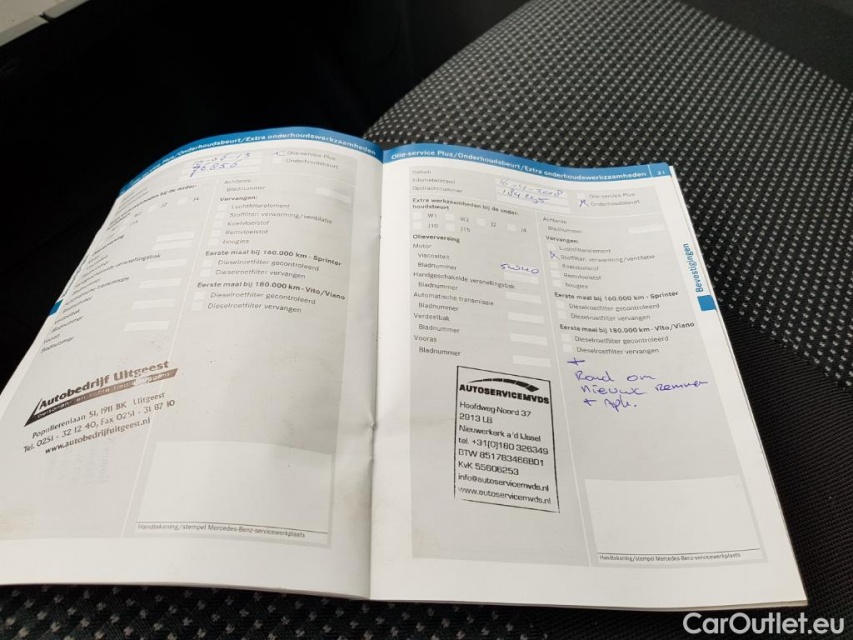 Plus/Onderhoudsbeurt/Extra onderhoudswerkzaamheden
Olie-service Plus
Onderhoudsbeurt
Achteras
Bladnummer
Vervangen:
Luchtfilterelement
Stoffilter, verwarming/ventilatie
Koelvloeistof
Remvloeistof
bougies
Eerste maal bij 160.000 km - Sprinter
Dieselroetfilter gecontroleerd
Dieselroetfilter vervangen
Eerste maal bij 180.000 km - Vito/Viano
Dieselroetfilter gecontroleerd
Dieselroetfilter vervangen
Bladnummer
Autobedrijf Uitgeest
Populierenlaan 51, 1911 BK Uitgeest
Tel. 0251 - 31 12 40, Fax 0251 - 31 87 10
www.autobedrijfuitgeest.nl
Handtekening/stempel Mercedes-Benz-servicewerkplaats
Olie-service Plus/Onderhoudsbeurt/Extra onderhoudswerkzaamheden 21
Datum
Kilometerstand
Opdrachtnummer
Olie-service Plus
Onderhoudsbeurt
Extra werkzaamheden bij de onder-
houdsbeurt
W1 W2 J2 J4
J10 J15
Olieverversing
Motor
Viscositeit
Bladnummer 5W40
Handgeschakelde versnellingsbak
Bladnummer
Automatische transmissie
Bladnummer
Verdeelbak
Bladnummer
Vooras
Bladnummer
Achteras
Bladnummer
Vervangen:
Luchtfilterelement
Stoffilter, verwarming/ventilatie
Koelvloeistof
Remvloeistof
bougies
Eerste maal bij 160.000 km - Sprinter
Dieselroetfilter gecontroleerd
Dieselroetfilter vervangen
Eerste maal bij 180.000 km - Vito/Viano
Dieselroetfilter gecontroleerd
Dieselroetfilter vervangen
+
Rond om
nieuwe remmen
+ Apk.
AUTOSERVICEMVDS
Hoofdweg-Noord 37
2913 LB
Nieuwerkerk a'd IJssel
tel. +31(0)180 326349
BTW 851783466B01
KvK 55606253
info@autoservicemvds.nl
www.autoservicemvds.nl
Handtekening/stempel Mercedes-Benz-servicewerkplaats
Bevestigingen
CarOutlet.eu